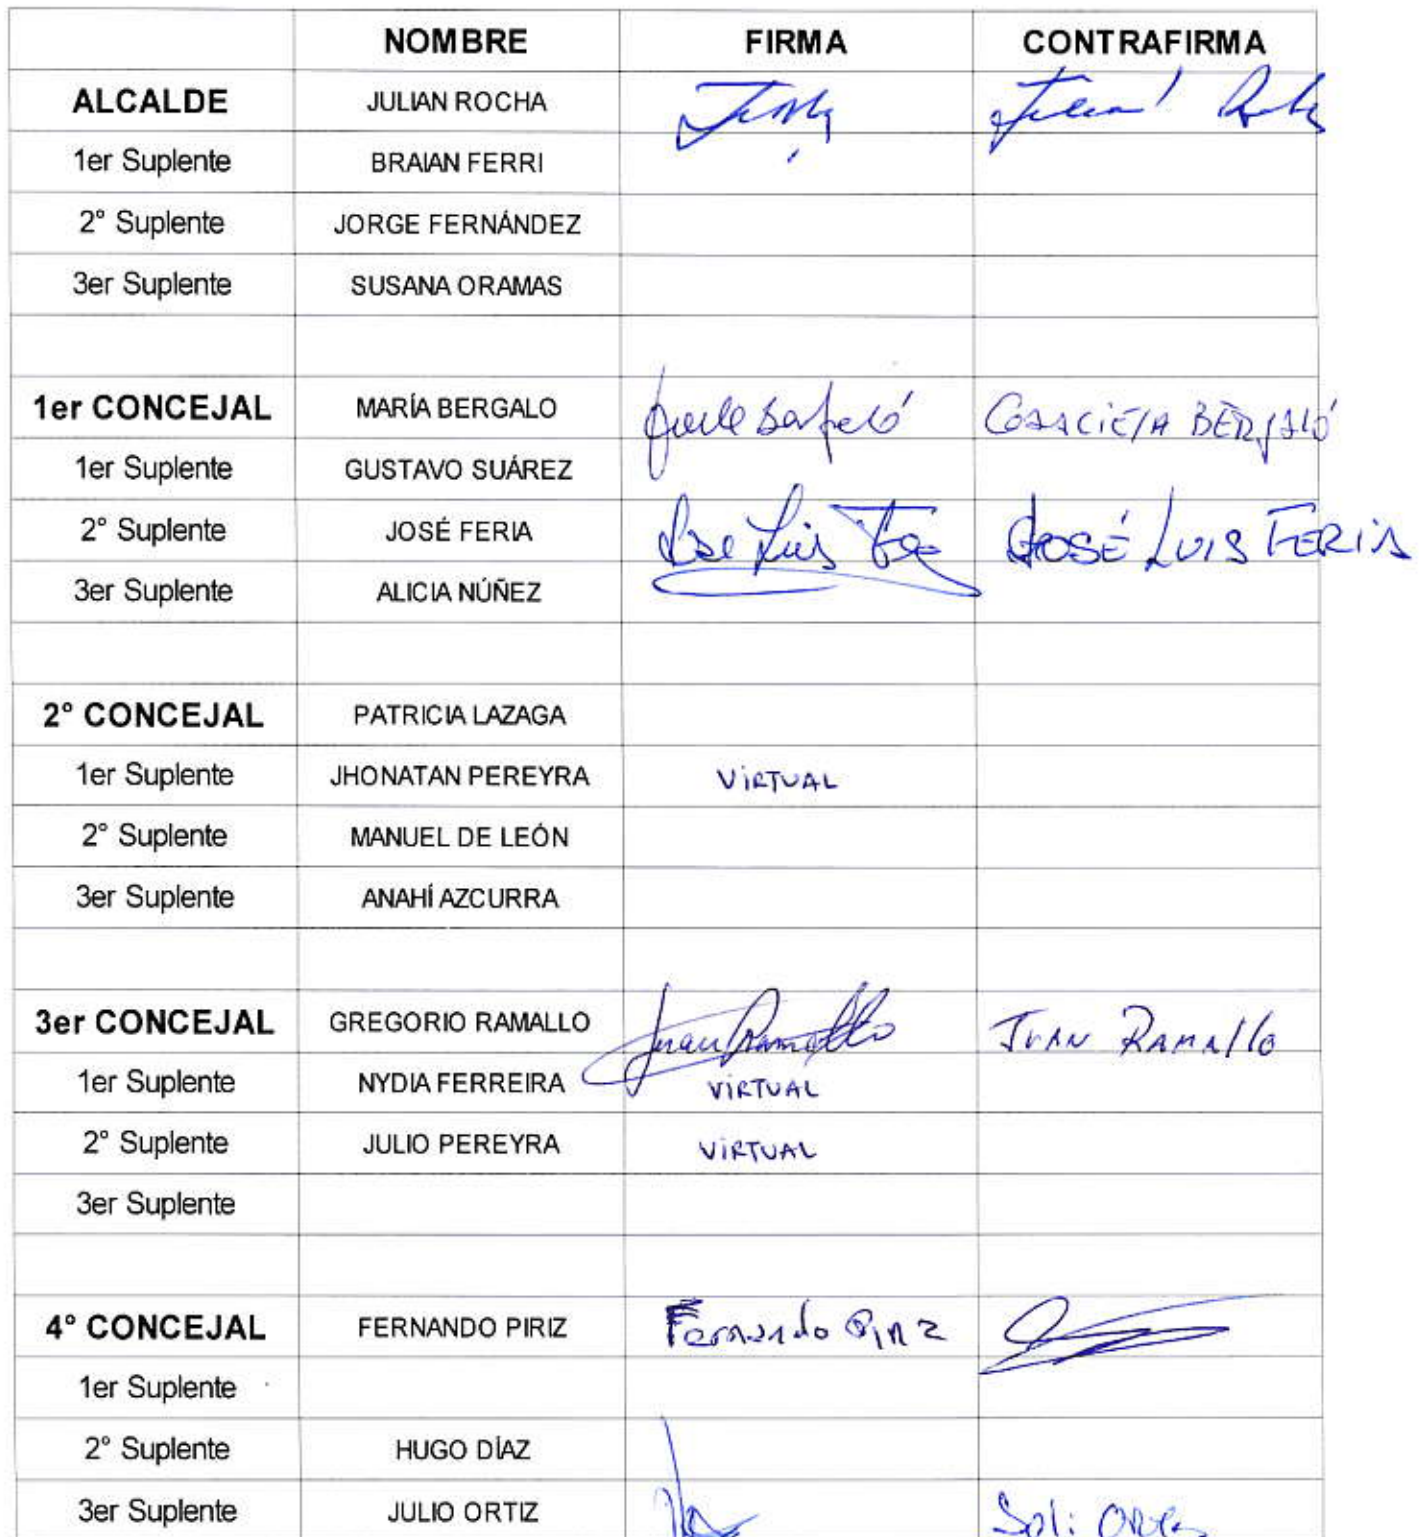 NOMBRE FIRMA CONTRAFIRMA
ALCALDE JULIAN ROCHA
1er Suplente BRAIAN FERRI
2° Suplente JORGE FERNÁNDEZ
3er Suplente SUSANA ORAMAS
1er CONCEJAL MARÍA BERGALO
1er Suplente GUSTAVO SUÁREZ
2° Suplente JOSÉ FERIA JOSÉ LUIS FERIA
3er Suplente ALICIA NÚÑEZ
2° CONCEJAL PATRICIA LAZAGA
1er Suplente JHONATAN PEREYRA VIRTUAL
2° Suplente MANUEL DE LEÓN
3er Suplente ANAHÍ AZCURRA
3er CONCEJAL GREGORIO RAMALLO Juan Ramallo JUAN RAMALLO
1er Suplente NYDIA FERREIRA VIRTUAL
2° Suplente JULIO PEREYRA VIRTUAL
3er Suplente
4° CONCEJAL FERNANDO PIRIZ Fernando Piriz
1er Suplente
2° Suplente HUGO DÍAZ
3er Suplente JULIO ORTIZ